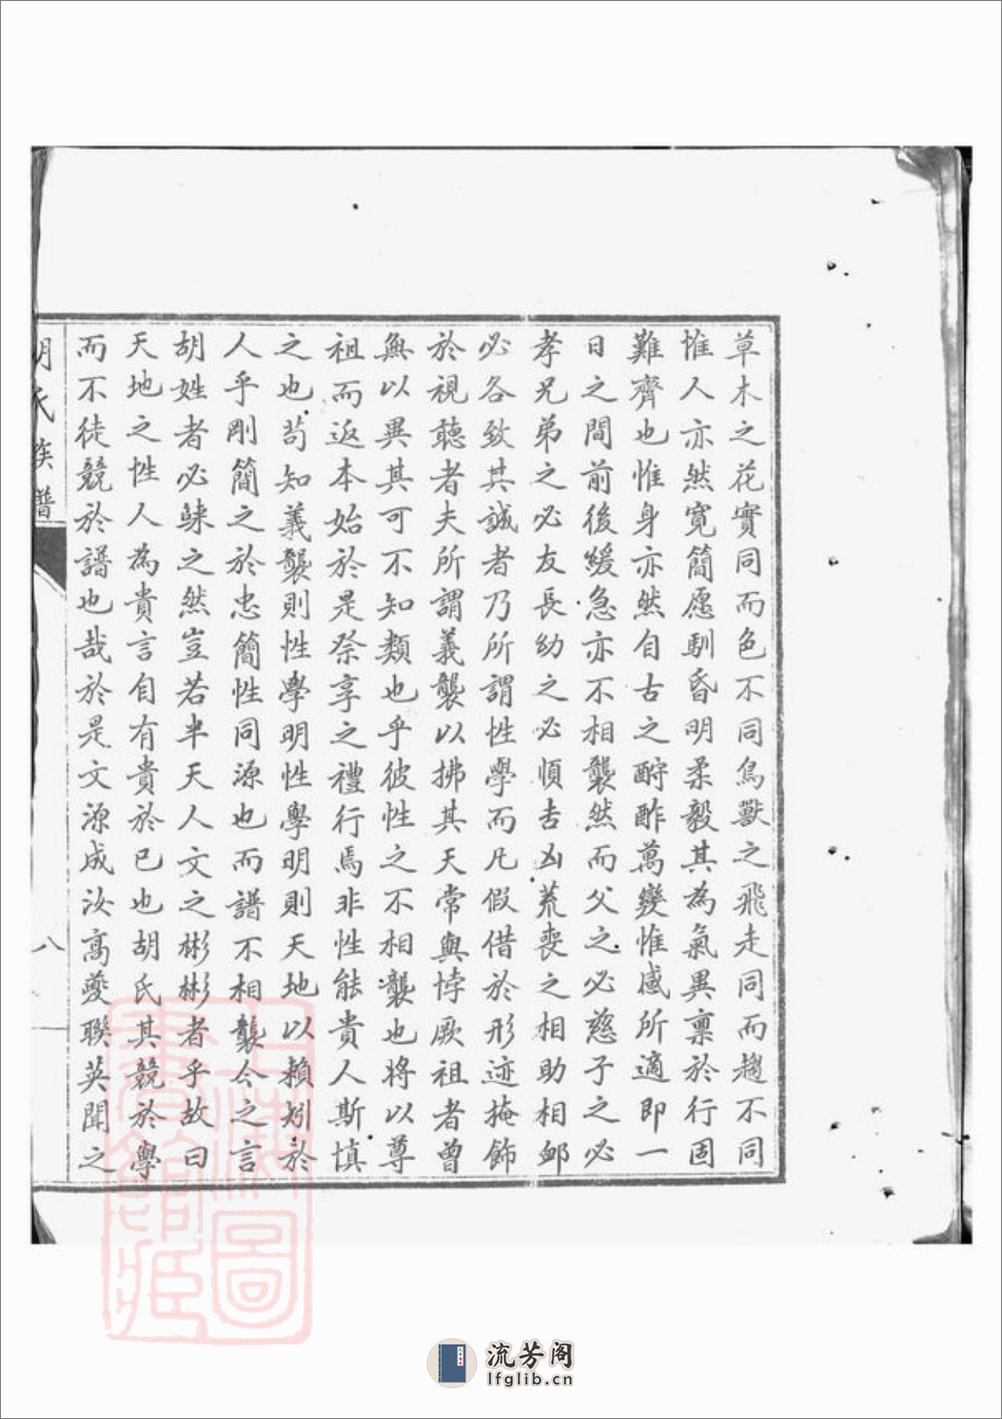 草木之花實同而色不同鳥獸之飛走同而趨不同
惟人亦然寛簡愿馴昏明柔毅其為氣異禀於行固
難齊也惟身亦然自古之酬酢萬變惟感所適即一
日之間前後緩急亦不相襲然而父之必慈子之必
孝兄弟之必友長幼之必順吉凶荒喪之相助相卹
必各致其誠者乃所謂性學而凡假借於形迹掩飾
於視聽者夫所謂義襲以拂其天常與悖厥祖者曾
無以異其可不知類也乎彼性之不相襲也將以尊
祖而返本始於是祭享之禮行焉非性能貴人斯慎
之也苟知義襲則性學明性學明則天地以賴矧於
人乎剛簡之於忠簡性同源也而譜不相襲今之言
胡姓者必疎之然豈若半天人文之彬彬者乎故曰
天地之性人為貴言自有貴於已也胡氏其競於學
而不徒競於譜也哉於是文源成汝高夔聯英聞之
胡氏族譜
八
上海圖
書館藏
流芳阁
lfglib.cn